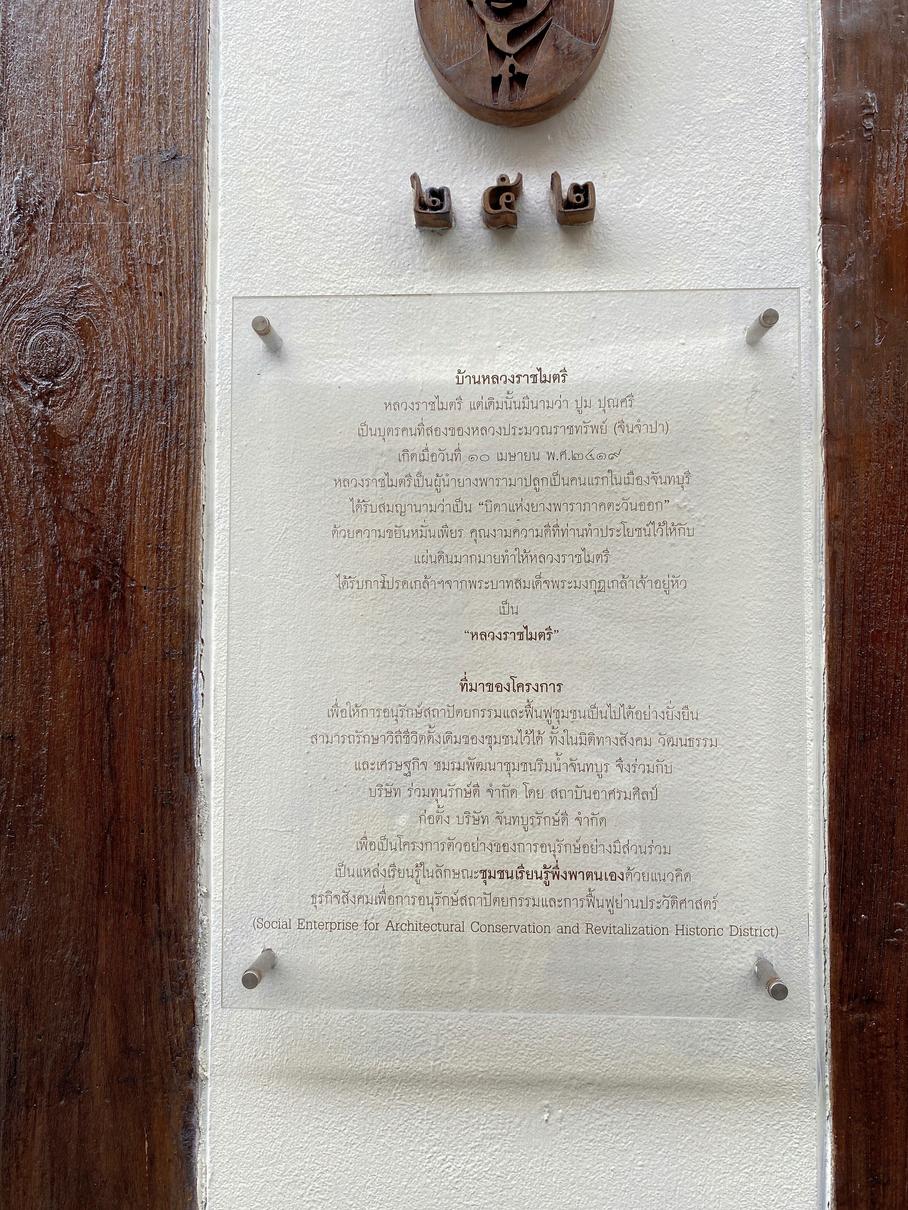 ๒๕๒
บ้านหลวงราชไมตรี
หลวงราชไมตรี แต่เดิมนั้นมีนามว่า ปูม ปุณศรี
เป็นบุตรคนที่สองของหลวงประมวณราชทรัพย์ (จีนจำปา)
เกิดเมื่อวันที่ ๑๐ เมษายน พ.ศ.๒๔๑๙
หลวงราชไมตรีเป็นผู้นำยางพารามาปลูกเป็นคนแรกในเมืองจันทบุรี
ได้รับสมญานามว่าเป็น “บิดาแห่งยางพาราภาคตะวันออก”
ด้วยความขยันหมั่นเพียร คุณงามความดีที่ท่านทำประโยชน์ไว้ให้กับ
แผ่นดินมากมายทำให้หลวงราชไมตรี
ได้รับการโปรดเกล้าฯจากพระบาทสมเด็จพระมงกุฎเกล้าเจ้าอยู่หัว
เป็น
“หลวงราชไมตรี”
ที่มาของโครงการ
เพื่อให้การอนุรักษ์สถาปัตยกรรมและฟื้นฟูชุมชนเป็นไปได้อย่างยั่งยืน
สามารถรักษาวิถีชีวิตดั้งเดิมของชุมชนไว้ได้ ทั้งในมิติทางสังคม วัฒนธรรม
และเศรษฐกิจ ชมรมพัฒนาชุมชนริมน้ำจันทบูร จึงร่วมกับ
บริษัท ร่วมทุนรักษ์ดี จำกัด โดย สถาบันอาศรมศิลป์
ก่อตั้ง บริษัท จันทบูรรักษ์ดี จำกัด
เพื่อเป็นโครงการตัวอย่างของการอนุรักษ์อย่างมีส่วนร่วม
เป็นแหล่งเรียนรู้ในลักษณะชุมชนเรียนรู้พึ่งพาตนเองด้วยแนวคิด
ธุรกิจสังคมเพื่อการอนุรักษ์สถาปัตยกรรมและการฟื้นฟูย่านประวัติศาสตร์
(Social Enterprise for Architectural Conservation and Revitalization Historic District)